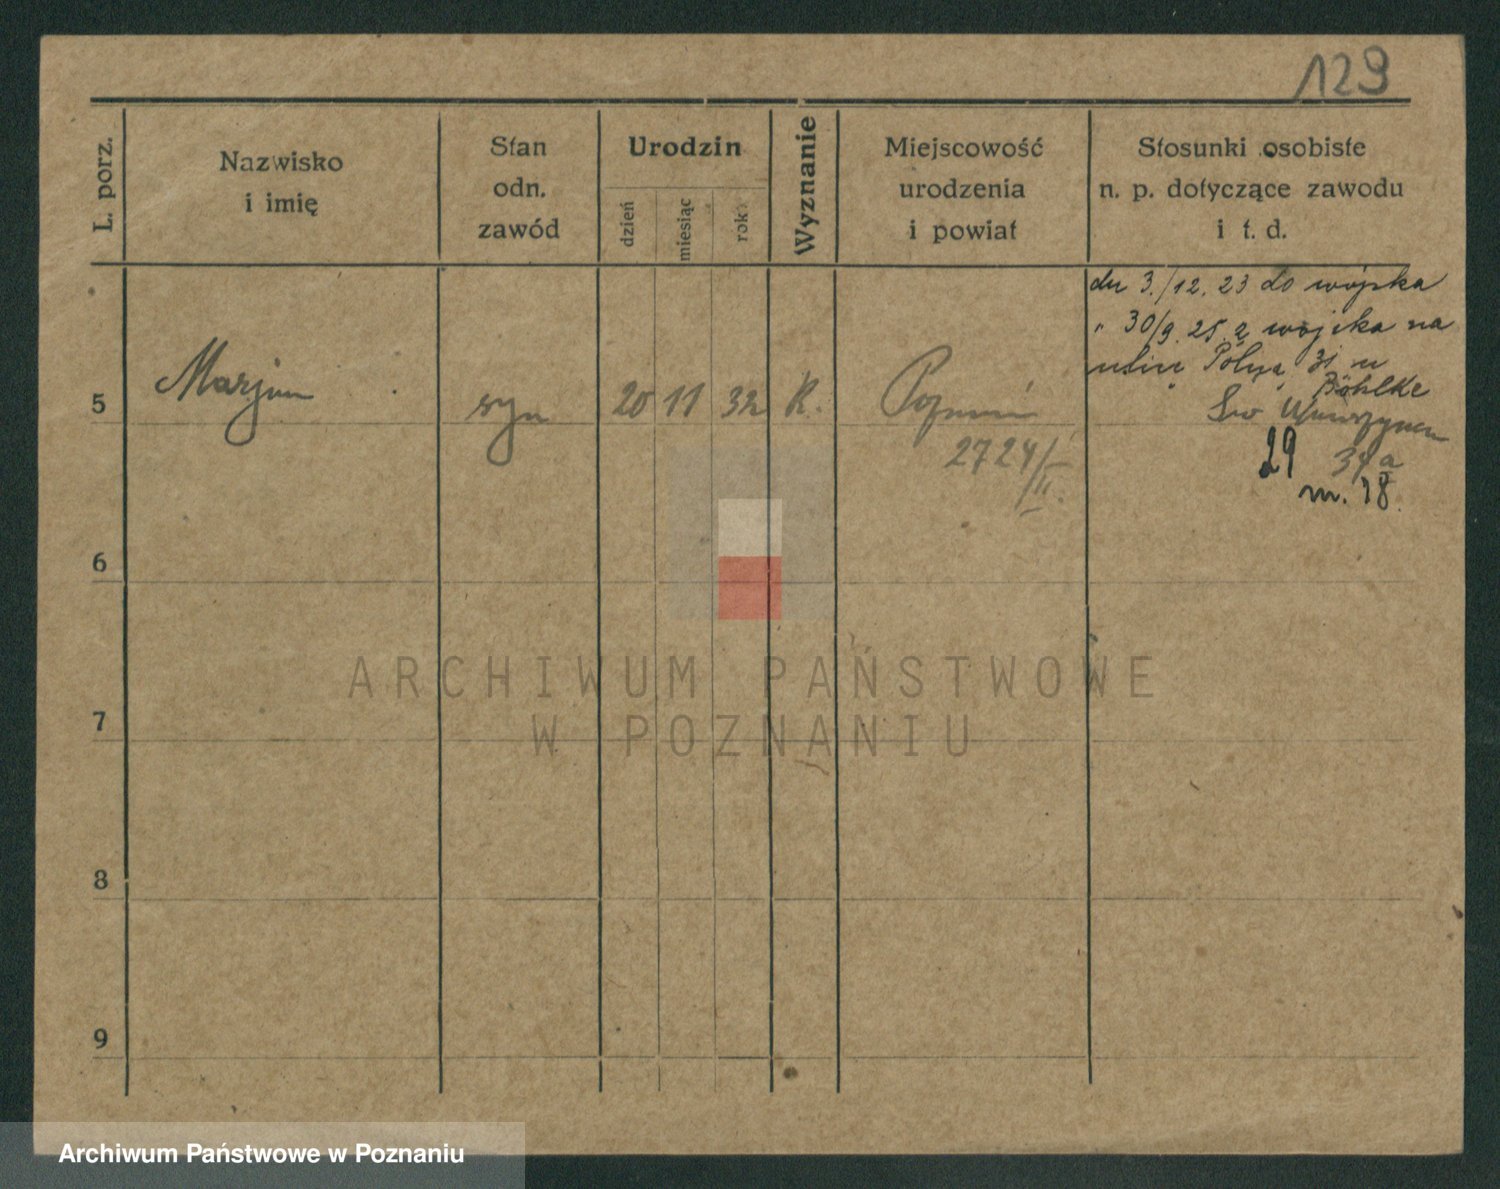 129
L. porz.
Nazwisko
i imię
Stan
odn.
zawód
Urodzin
dzień
miesiąc
rok
Wyznanie
Miejscowość
urodzenia
i powiat
Stosunki osobiste
n. p. dotyczące zawodu
i t. d.
3./12. 23 do wojska
" 30/9. 25. z wojska na
31 u
Böhlke
Św. Wawrzyńca
29 34 a
m. 18.
5 Marjan syn 20 11 32 R. Poznań
2724/II.
6
7
8
9
ARCHIWUM PAŃSTWOWE
W POZNANIU
Archiwum Państwowe w Poznaniu